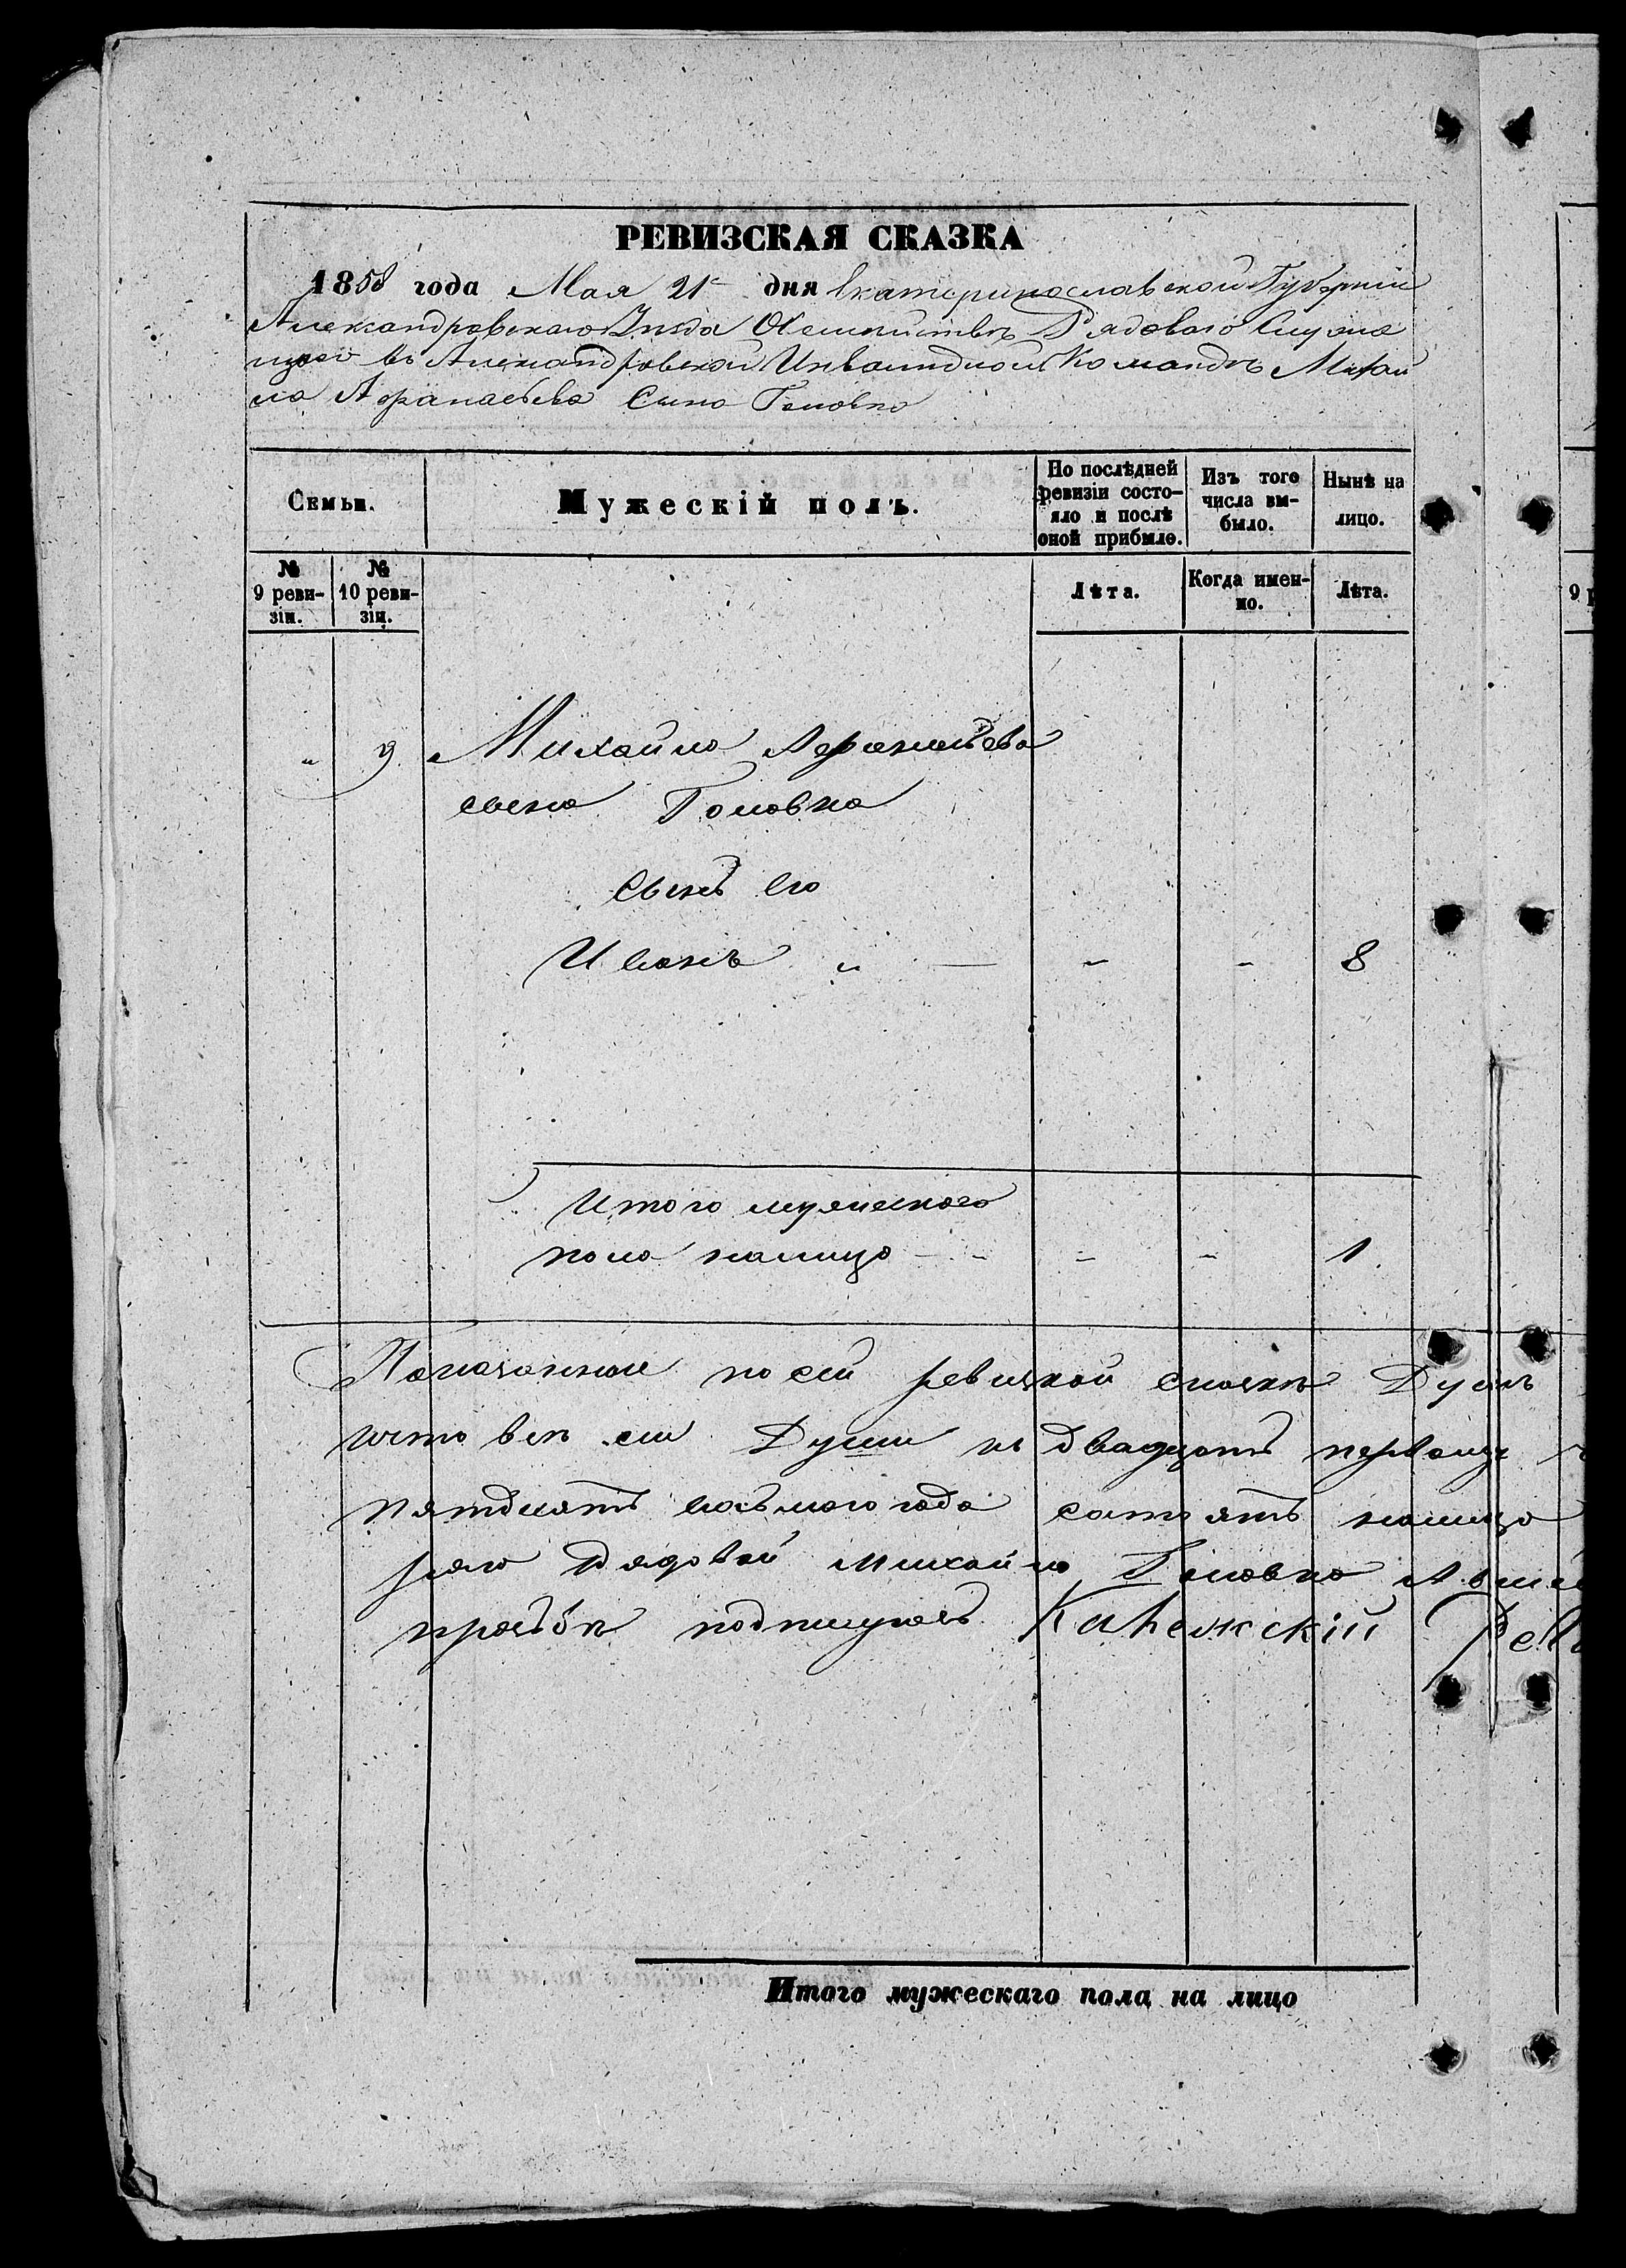 РЕВИЗСКАЯ СКАЗКА
1858 года Мая 21г дня Екатеринославской Губерніи
Александровскаго Уѣзда О Семействѣ Рядоваго Служа
щаго въ Александровской Инвалидной Командѣ Михай
ла Афанасьева Сына Головко
Семьи.
Мужескій полъ.
По послѣдней ревизіи состо-
яло и послѣ оной прибыло.
Изъ того числа вы-
было.
Нынѣ на лицо.
№ 9 реви-
зіи.
№ 10 реви-
зіи.
Лѣта.
Когда имен-
но.
Лѣта.
9
" 9 Михайло Афанасьева
сына Головко
Сынъ его
Иванъ " — - - 8
Итого мужескаго
пола налицо - - - - 1
по сей ревизкой сказкѣ Душъ
что всѣ сіи Души къ двадцать первому
пятдесятъ восьмаго года состоятъ налицо
рядовой Михайло Головко А
прозбѣ подписуюсь
Итого мужескаго пола на лицо